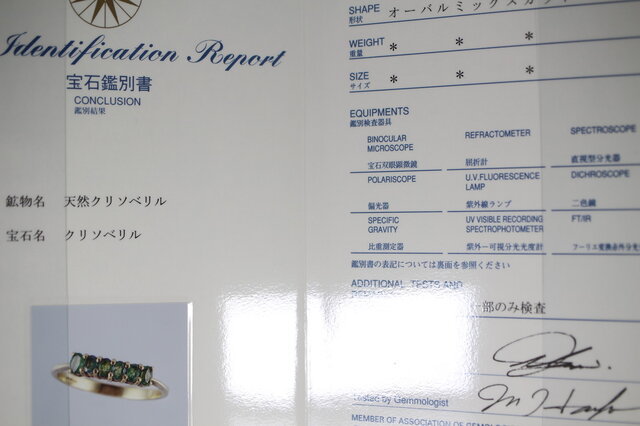 Identification Report
宝石鑑別書
CONCLUSION
鑑別結果
鉱物名 天然クリソベリル
宝石名 クリソベリル
SHAPE オーバルミックスカット
形状
WEIGHT * * *
重量
SIZE * * *
サイズ
EQUIPMENTS
鑑別検査器具
BINOCULAR MICROSCOPE
宝石双眼顕微鏡
REFRACTOMETER
屈折計
SPECTROSCOPE
直視型分光器
POLARISCOPE
偏光器
U.V.FLUORESCENCE LAMP
紫外線ランプ
DICHROSCOPE
二色鏡
SPECIFIC GRAVITY
比重測定器
UV VISIBLE RECORDING SPECTROPHOTOMETER
紫外-可視分光光度計
FT/IR
フーリエ変換赤外分光
鑑別書の表記については裏面を参照ください
ADDITIONAL TESTS AND
一部のみ検査
Tested by Gemmologist
MEMBER OF ASSOCIATION OF